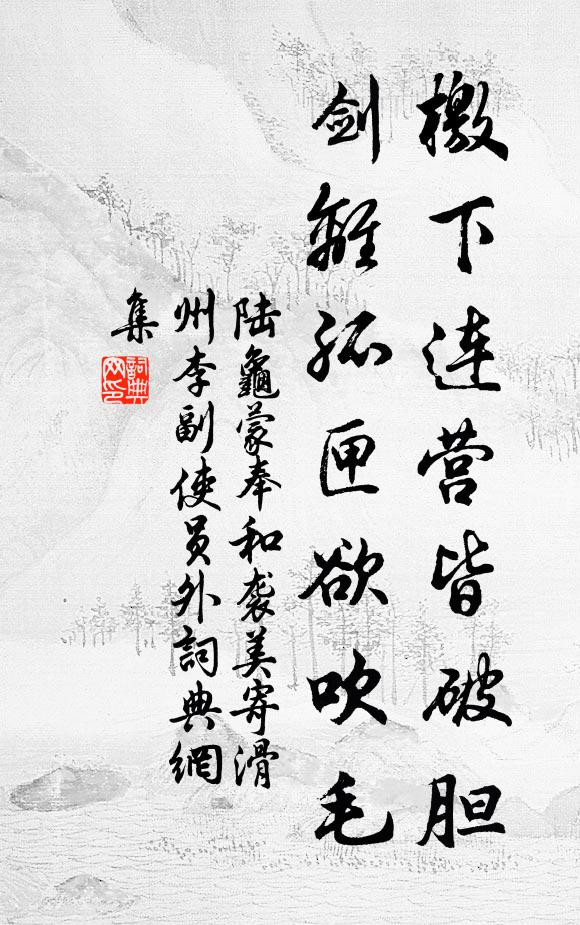 檄下连营皆破胆
剑离孤匣欲吹毛
陆龜蒙奉和袭美寄滑
州李副使员外詞典網
集
詞典
网印